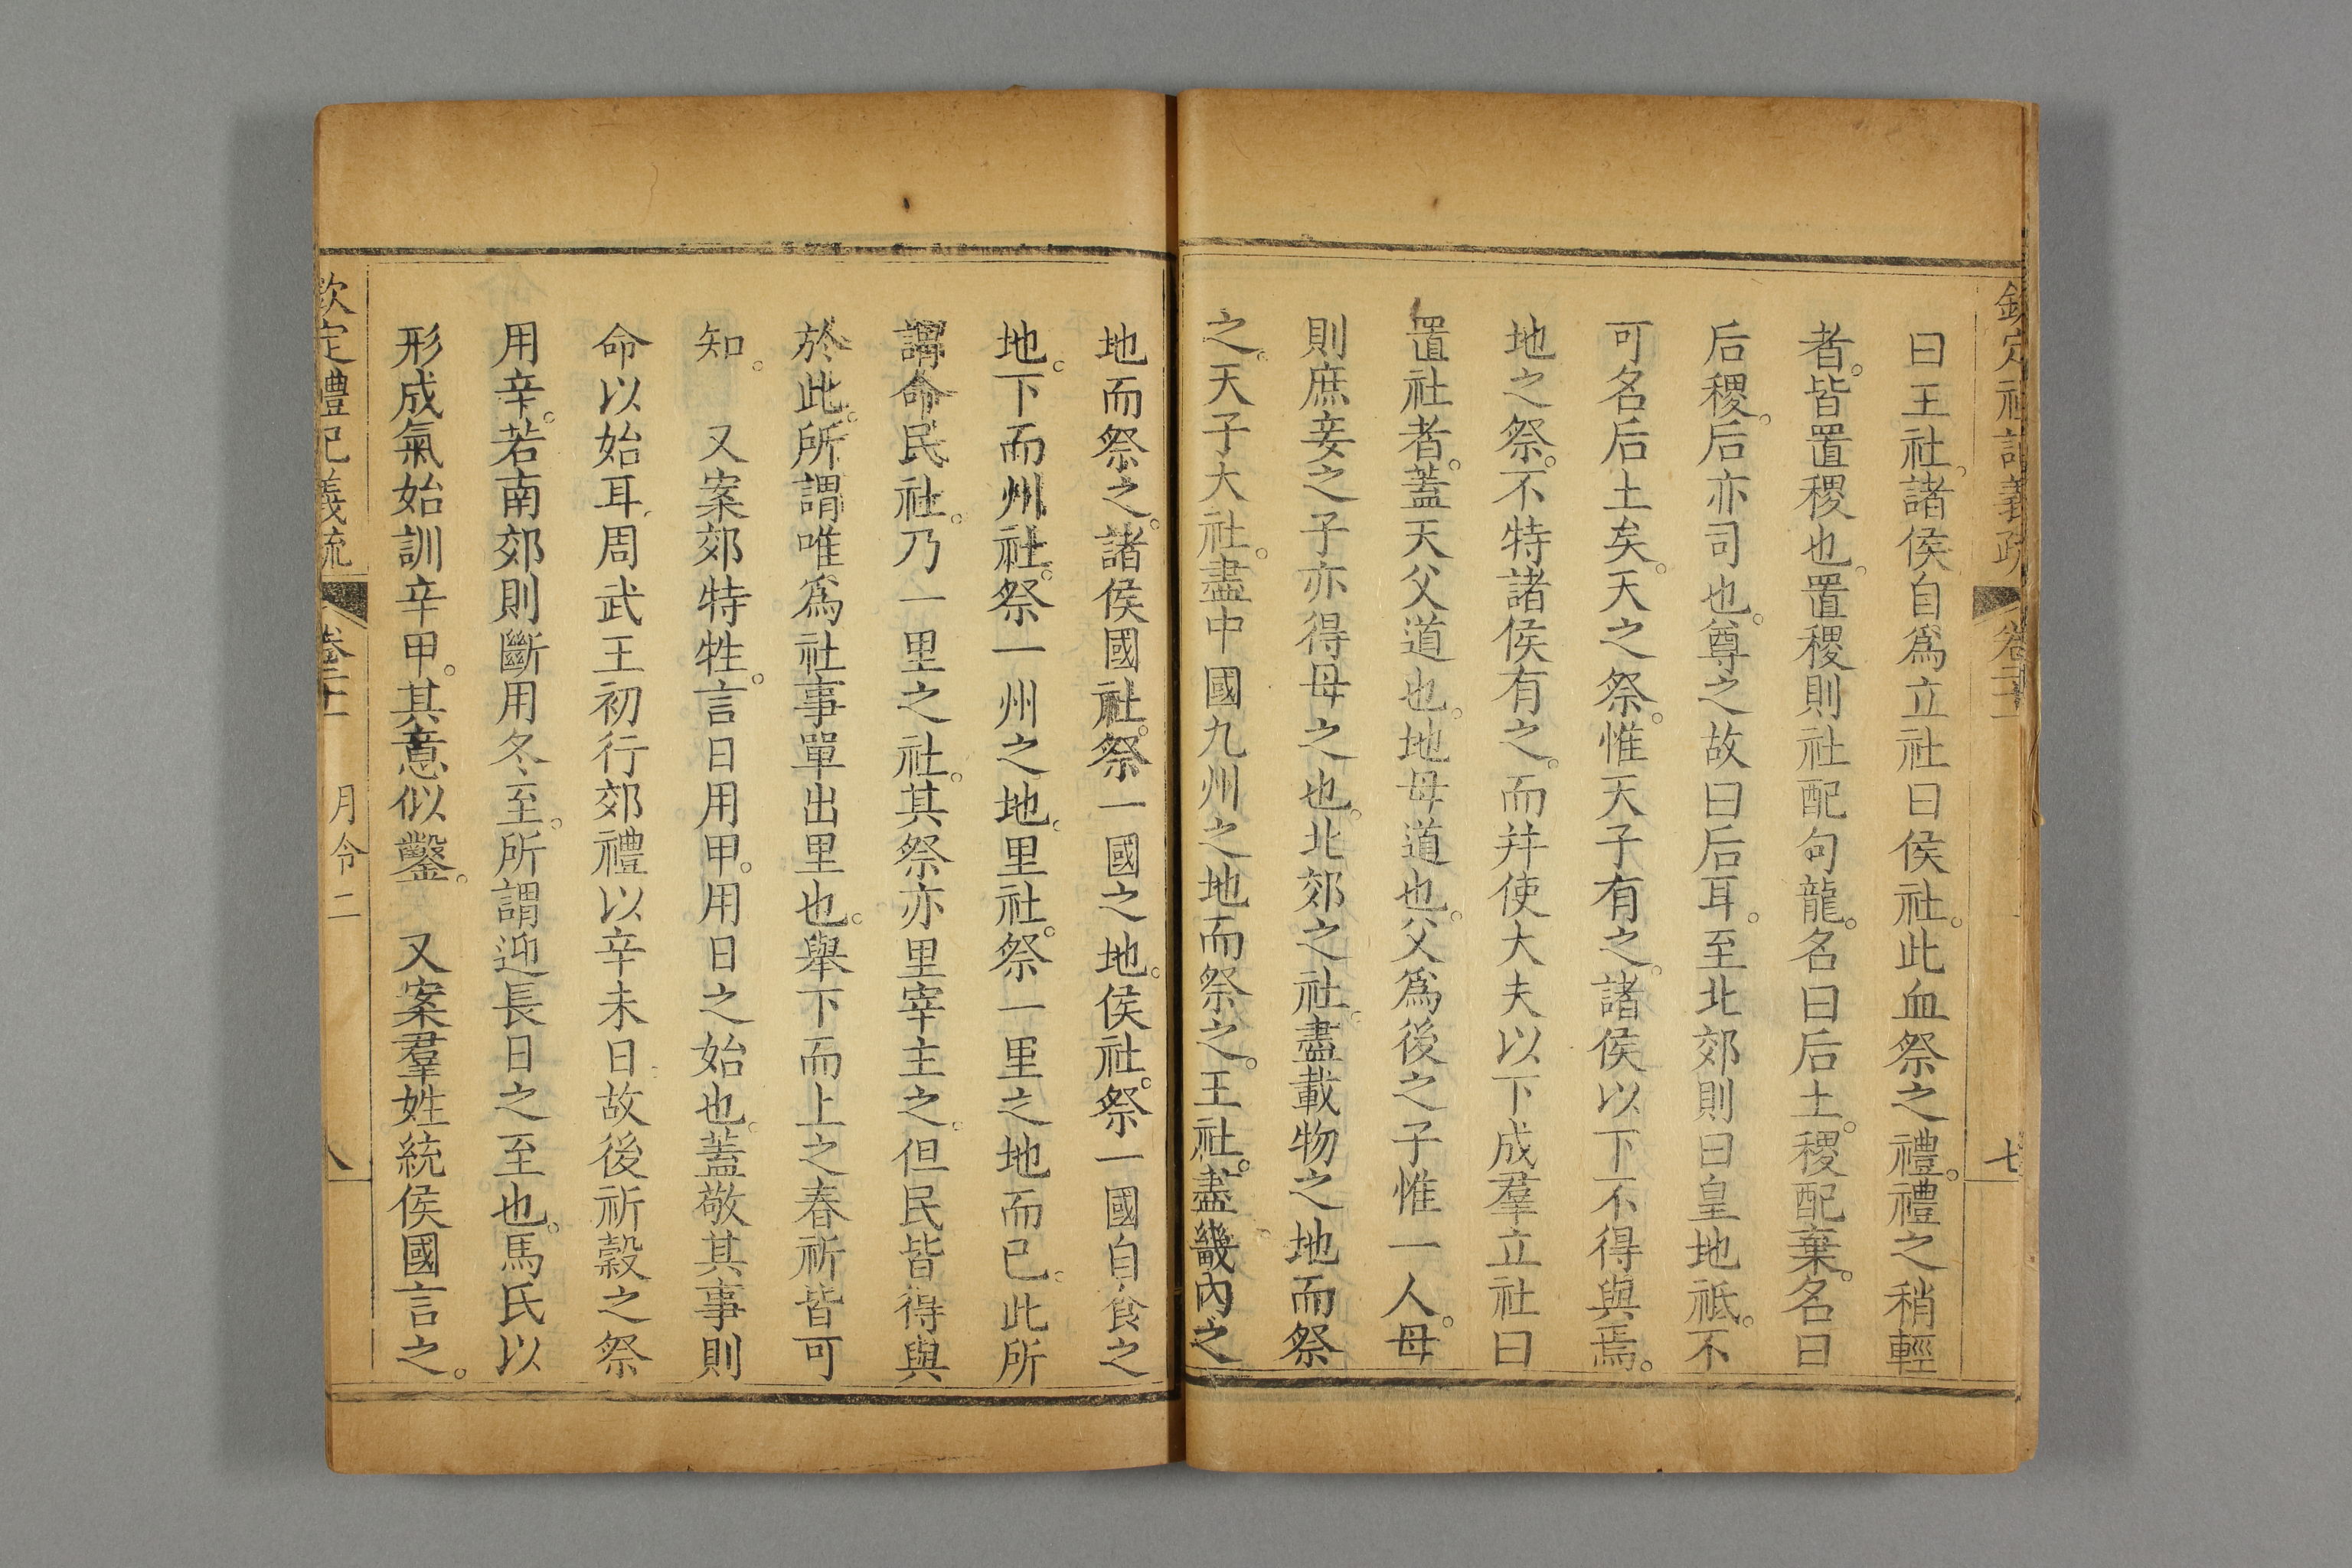 欽定禮記義疏 卷二十一 七
曰王社。諸侯自爲立社曰侯社。此血祭之禮。禮之稍輕
者。皆置稷也。置稷則社配句龍。名曰后土。稷配棄。名曰
后稷。后亦司也。尊之故曰后耳。至北郊則曰皇地祗。不
可名后土矣。天之祭。惟天子有之。諸侯以下不得與焉。
地之祭。不特諸侯有之。而幷使大夫以下成羣立社曰
置社者。蓋天父道也。地母道也。父爲後之子惟一人。母
則庶妾之子亦得母之也。北郊之社。盡載物之地而祭
之。天子大社。盡中國九州之地而祭之。王社。盡畿內之
地而祭之。諸侯國社。祭一國之地。侯社。祭一國自食之
地。下而州社。祭一州之地。里社。祭一里之地而已。此所
謂命民社。乃一里之社。其祭亦里宰主之。但民皆得與
於此。所謂唯爲社事單出里也。舉下而上之春祈皆可
知。 又案郊特牲。言日用甲。用日之始也。蓋敬其事則
命以始耳。周武王初行郊禮以辛未日故後祈穀之祭
用辛。若南郊則斷用冬至。所謂迎長日之至也。馬氏以
形成氣始訓辛甲。其意似鑿。 又案羣姓統侯國言之。
欽定禮記義疏 卷二十一 月令二 八